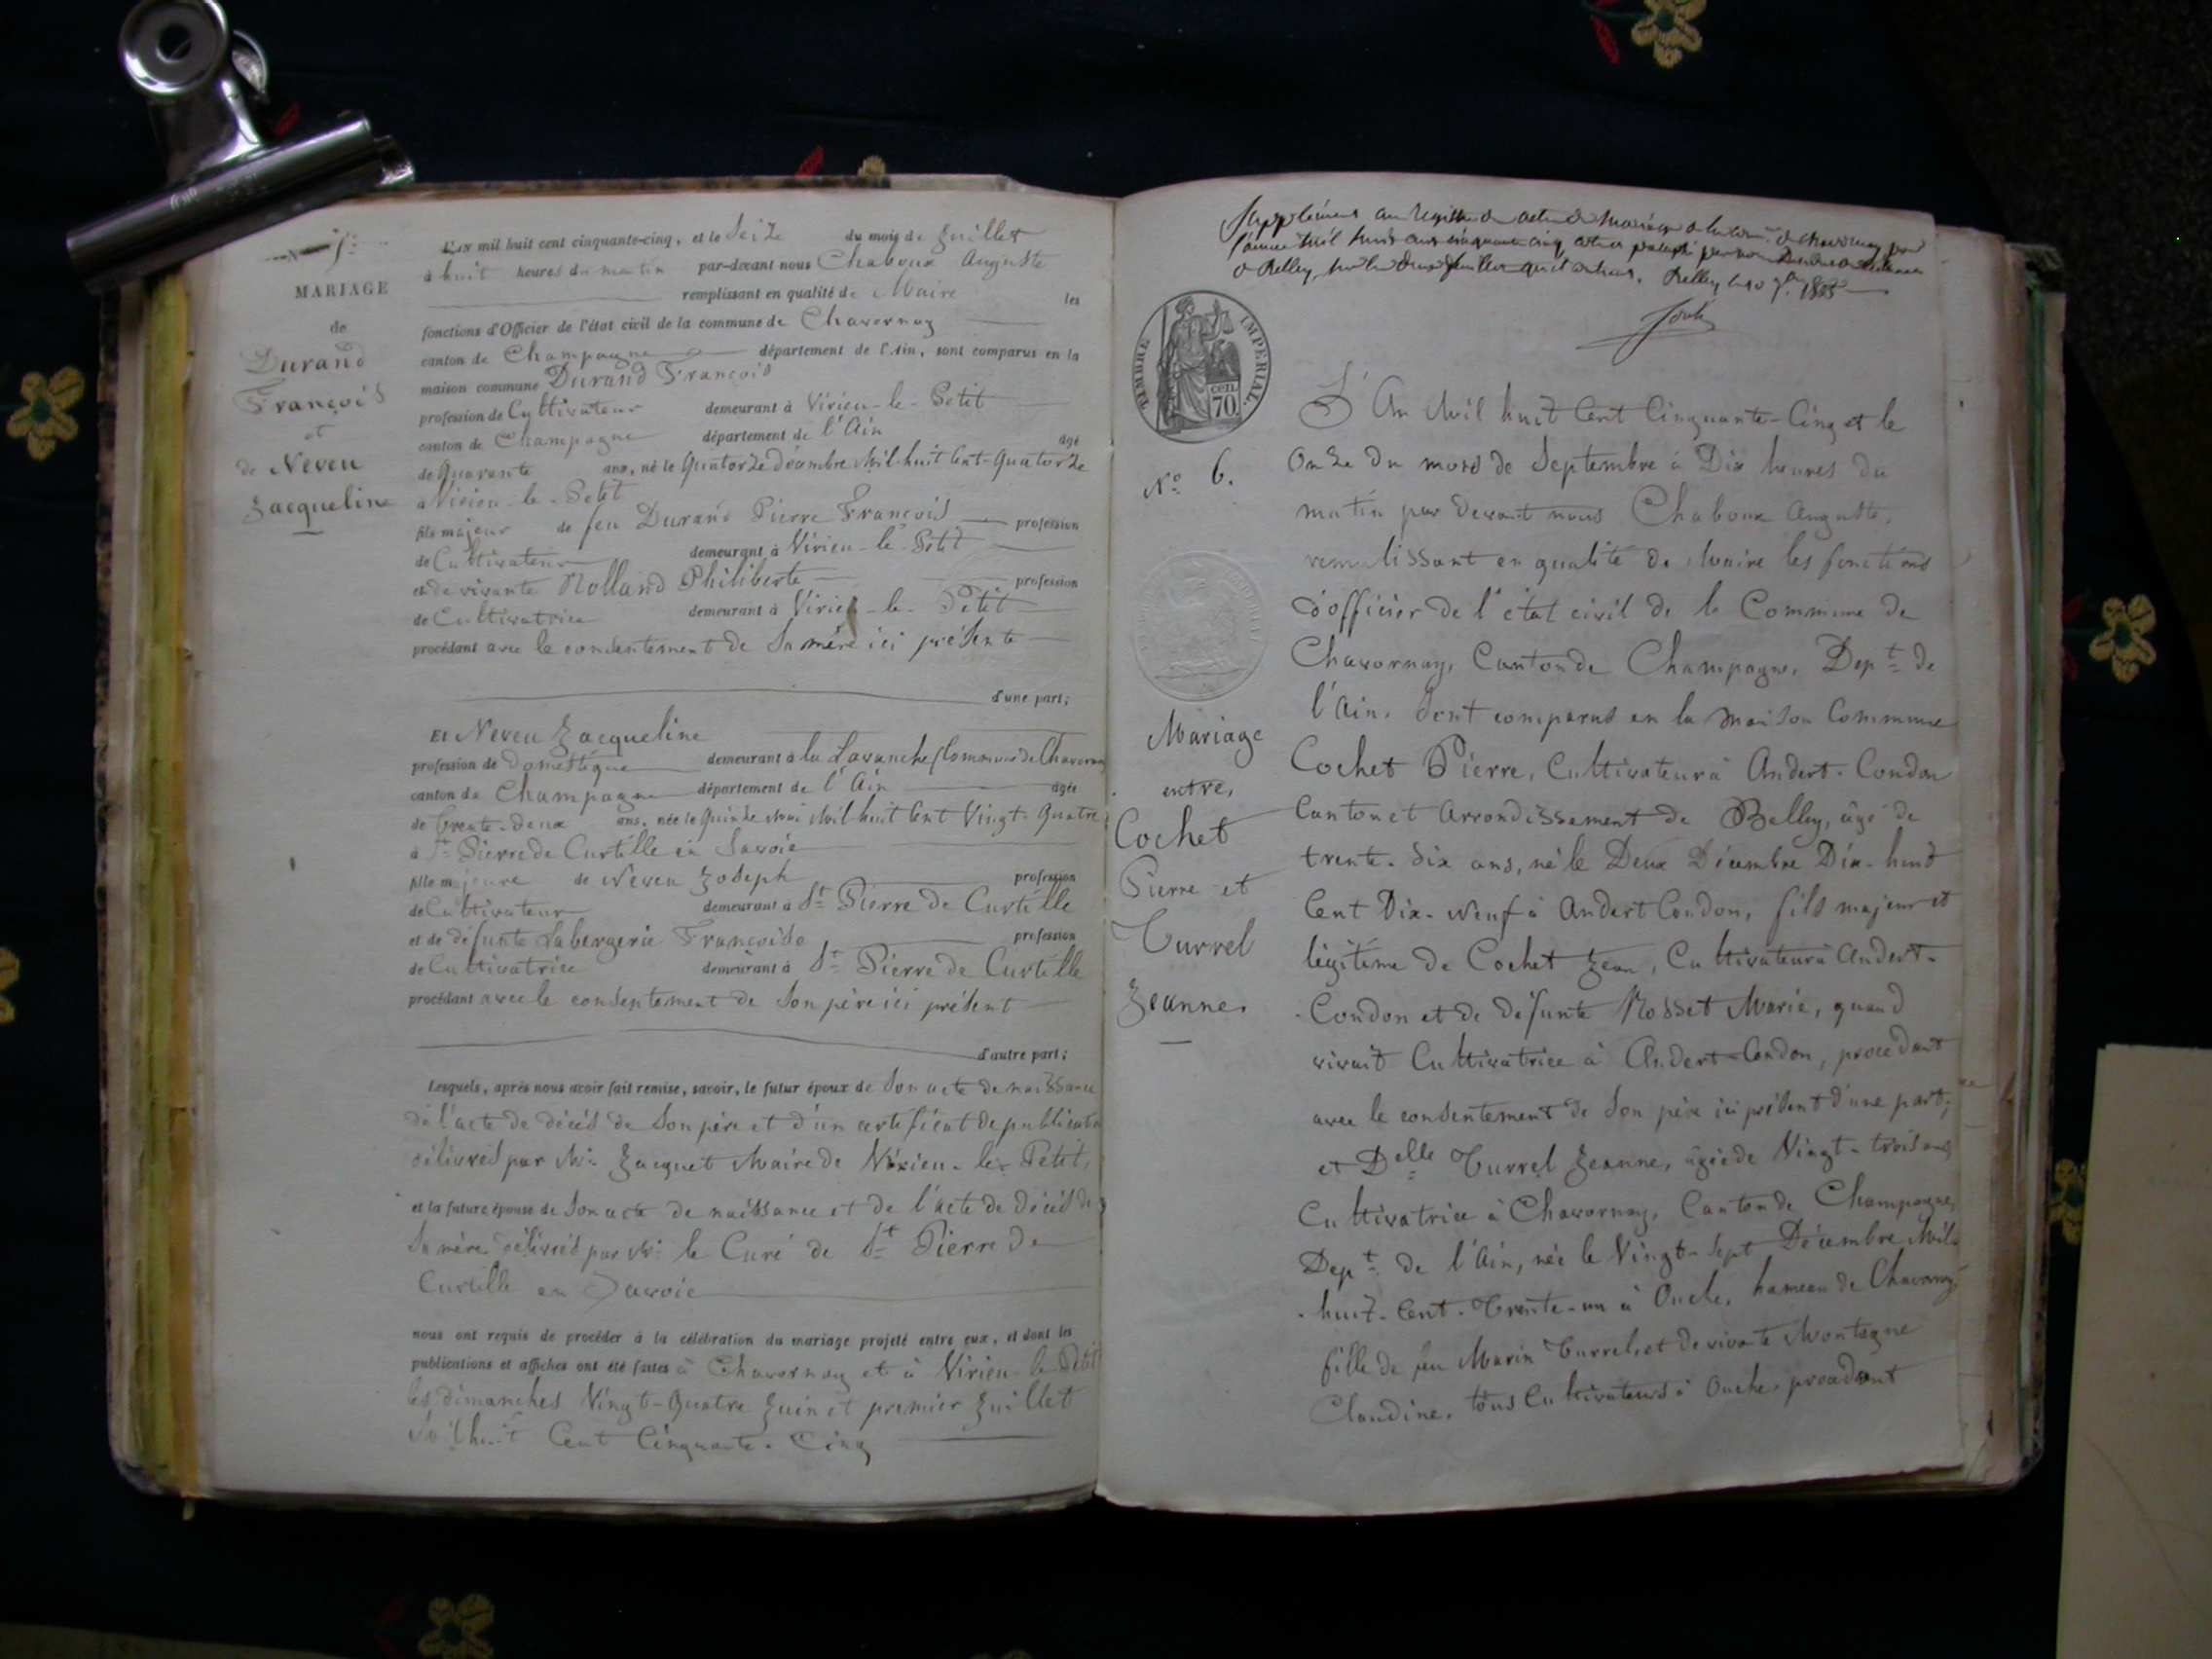 N° 5.
MARIAGE
de
Durand
François
et
de Neveu
Jacqueline
L'AN mil huit cent cinquante-cinq, et le Seize du mois de Juillet
à huit heures du matin par-devant nous Chaboux Auguste
remplissant en qualité de Maire les
fonctions d'Officier de l'état civil de la commune de Chavornay
canton de Champagne département de l'Ain, sont comparus en la
maison commune Durand François
profession de Cultivateur demeurant à Virieu-le-Petit
canton de Champagne département de l'Ain âgé
de Quarante ans, né le Quatorze Décembre Mil-huit Cent-Quatorze
à Virieu-le-Petit
fils majeur de feu Durand Pierre François profession
de Cultivateur demeurant à Virieu-le-Petit
et de vivante Rolland Philiberte profession
de Cultivatrice demeurant à Virieu-le-Petit
procédant avec le consentement de Sa mère ici présente
d'une part;
Et Neveu Jacqueline
profession de Domestique demeurant à la Lavanche (Commune de Chavornay
canton de Champagne département de l'Ain âgée
de trente-deux ans, née le Quinze Mai Mil huit Cent Vingt-Quatre
à St Pierre de Curtille en Savoie
fille majeure de Neveu Joseph profession
de Cultivateur demeurant à St Pierre de Curtille
et de défunte Labergerie Françoise profession
de Cultivatrice demeurant à St Pierre de Curtille
procédant avec le consentement de Son père ici présent
d'autre part;
Lesquels, après nous avoir fait remise, savoir, le futur époux de Son acte de naissance
de l'acte de décès de Son père et d'un certificat de publication
délivrés par Mr Jacquet Maire de Virieu-le-Petit,
et la future épouse de Son acte de naissance et de l'acte de Décès de
Sa mère délivrés par Mr le Curé de St Pierre de
Curtille en Savoie
nous ont requis de procéder à la célébration du mariage projeté entre eux, et dont les
publications et affiches ont été faites à Chavornay et à Virieu-le-Petit
les dimanches Vingt-Quatre Juin et premier Juillet
Mil huit Cent Cinquante-Cinq
Supplément au registre des actes de mariage de la comne de Chavornay pour
l'année mil huit cent cinquante cinq
Belley le 10 7bre 1855
TIMBRE IMPERIAL
70 cen.
N° 6.
Mariage
entre,
Cochet
Pierre et
Turrel
Jeanne.
L'An Mil huit Cent Cinquante-Cinq et le
Onze du mois de Septembre à Dix heures du
matin par devant nous Chaboux Auguste,
remplissant en qualité de Maire les fonctions
d'officier de l'état civil de la Commune de
Chavornay, Canton de Champagne, Dept de
l'Ain, Sont comparus en la Maison Commune
Cochet Pierre, Cultivateur à Andert-Condon
Canton et Arrondissement de Belley, âgé de
trente-Six ans, né le Deux Décembre Dix-huit
Cent Dix-Neuf à Andert Condon, fils majeur et
légitime de Cochet Jean, Cultivateur à Andert-
Condon et de défunte Rosset Marie, quand
vivait Cultivatrice à Andert-Condon, procédant
avec le consentement de Son père ici présent d'une part;
et Delle Turrel Jeanne, âgée de Vingt-trois ans,
Cultivatrice à Chavornay, Canton de Champagne,
Dept de l'Ain, née le Vingt-Sept Décembre Mil-
huit-Cent-Trente-un à Ouche, hameau de Chavornay,
fille de feu Marin Turrel, et de vivante Montagne
Claudine, tous Cultivateurs à Ouche, procédant